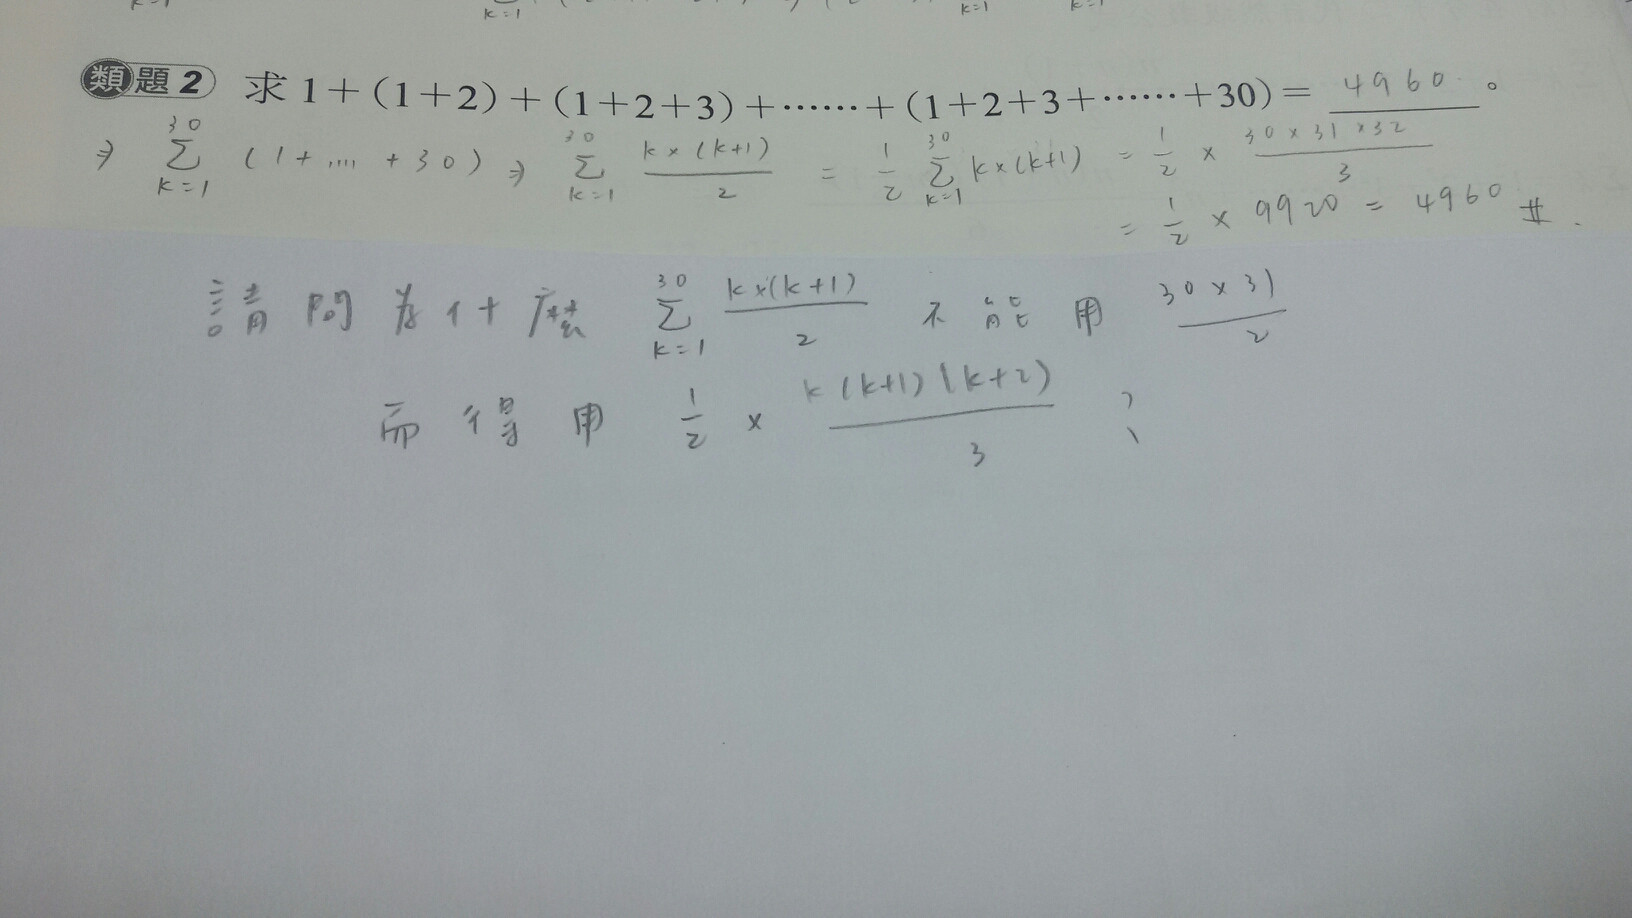 k=1 k=1 k=1 k=1
類題2 求 1+(1+2)+(1+2+3)+……+(1+2+3+……+30)= 4960 。
⇒ \sum_{k=1}^{30} (1+....+30) ⇒ \sum_{k=1}^{30} \frac{k×(k+1)}{2} = \frac{1}{2} \sum_{k=1}^{30} k×(k+1) = \frac{1}{2} × \frac{30×31×32}{3}
= \frac{1}{2} × 9920 = 4960 #.
請問為什麼 \sum_{k=1}^{30} \frac{k×(k+1)}{2} 不能用 \frac{30×31}{2}
而得用 \frac{1}{2} × \frac{k(k+1)(k+2)}{3} ?